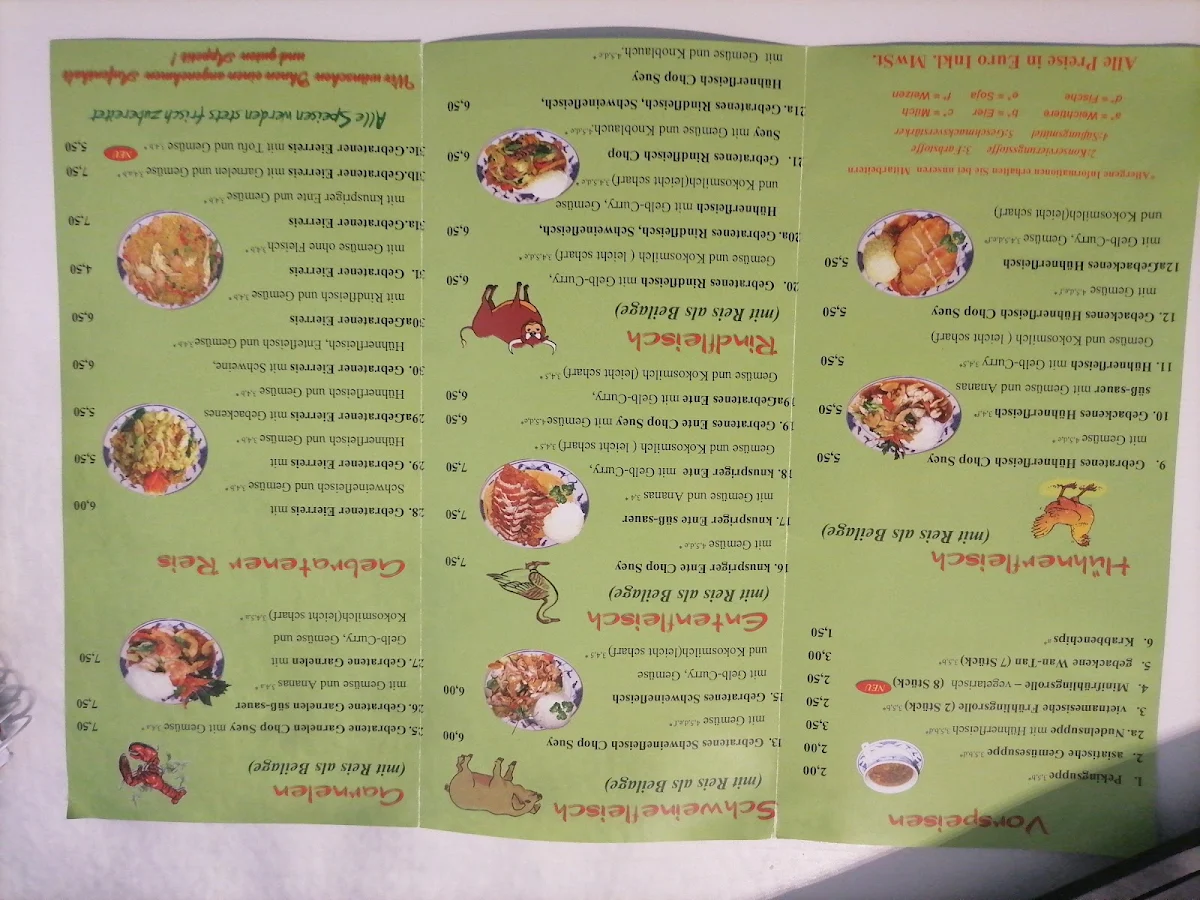 Vorspeisen
1. Pekingsuppe 2,00
2. asiatische Gemüsesuppe 2,00
2a. Nudelnsuppe mit Hühnerfleisch 3,50
3. vietnamesische Frühlingsrolle (2 Stück) 2,50
4. Minifrühlingsrolle – vegetarisch (8 Stück) NEU 2,50
5. gebackene Wan-Tan (7 Stück) 3,00
6. Krabbenchips 1,50
Hühnerfleisch
(mit Reis als Beilage)
9. Gebratenes Hühnerfleisch Chop Suey 5,50
mit Gemüse
10. Gebackenes Hühnerfleisch 5,50
süß-sauer mit Gemüse und Ananas
11. Hühnerfleisch mit Gelb-Curry 5,50
Gemüse und Kokosmilch ( leicht scharf)
12. Gebackenes Hühnerfleisch Chop Suey 5,50
mit Gemüse
12a.Gebackenes Hühnerfleisch 5,50
mit Gelb-Curry, Gemüse
und Kokosmilch(leicht scharf)
*Allergene Informationen erhalten Sie bei unseren Mitarbeitern
2:Konservierungsstoffe 3:Farbstoffe
4:Süßungsmittel 5:Geschmacksverstärker
a*= Weichtiere b*= Eier c*= Milch
d*= Fische e*= Soja f*= Weizen
Alle Preise in Euro Inkl. MwSt.
Schweinefleisch
(mit Reis als Beilage)
13. Gebratenes Schweinefleisch Chop Suey 6,00
mit Gemüse
15. Gebratenes Schweinefleisch 6,00
mit Gelb-Curry, Gemüse
und Kokosmilch(leicht scharf)
Entenfleisch
(mit Reis als Beilage)
16. knuspriger Ente Chop Suey 7,50
mit Gemüse
17. knuspriger Ente süß-sauer 7,50
mit Gemüse und Ananas
18. knuspriger Ente mit Gelb-Curry, 7,50
Gemüse und Kokosmilch ( leicht scharf)
19. Gebratenes Ente Chop Suey mit Gemüse 6,50
19aGebratenes Ente mit Gelb-Curry, 6,50
Gemüse und Kokosmilch (leicht scharf)
Rindfleisch
(mit Reis als Beilage)
20. Gebratenes Rindfleisch mit Gelb-Curry, 6,50
Gemüse und Kokosmilch ( leicht scharf)
20a. Gebratenes Rindfleisch, Schweinefleisch, 6,50
Hühnerfleisch mit Gelb-Curry, Gemüse
und Kokosmilch(leicht scharf)
21. Gebratenes Rindfleisch Chop 6,50
Suey mit Gemüse und Knoblauch
21a. Gebratenes Rindfleisch, Schweinefleisch, 6,50
Hühnerfleisch Chop Suey
mit Gemüse und Knoblauch,
Garnelen
(mit Reis als Beilage)
25. Gebratene Garnelen Chop Suey mit Gemüse 7,50
26. Gebratene Garnelen süß-sauer 7,50
mit Gemüse und Ananas
27. Gebratene Garnelen mit 7,50
Gelb-Curry, Gemüse und
Kokosmilch(leicht scharf)
Gebratener Reis
28. Gebratener Eierreis mit 6,00
Schweinefleisch und Gemüse
29. Gebratener Eierreis mit 5,50
Hühnerfleisch und Gemüse
29aGebratener Eierreis mit Gebackenes 5,50
Hühnerfleisch und Gemüse
30. Gebratener Eierreis mit Schweine, 6,50
Hühnerfleisch, Entefleisch und Gemüse
30aGebratener Eierreis 6,50
mit Rindfleisch und Gemüse
31. Gebratener Eierreis 4,50
mit Gemüse ohne Fleisch
31a.Gebratener Eierreis 7,50
mit knuspriger Ente und Gemüse
31b.Gebratener Eierreis mit Garnelen und Gemüse 7,50
31c.Gebratener Eierreis mit Tofu und Gemüse NEU 5,50
Alle Speisen werden stets frisch zubereitet
Wir wünschen Ihnen einen angenehmen Aufenthalt
und guten Appetit !